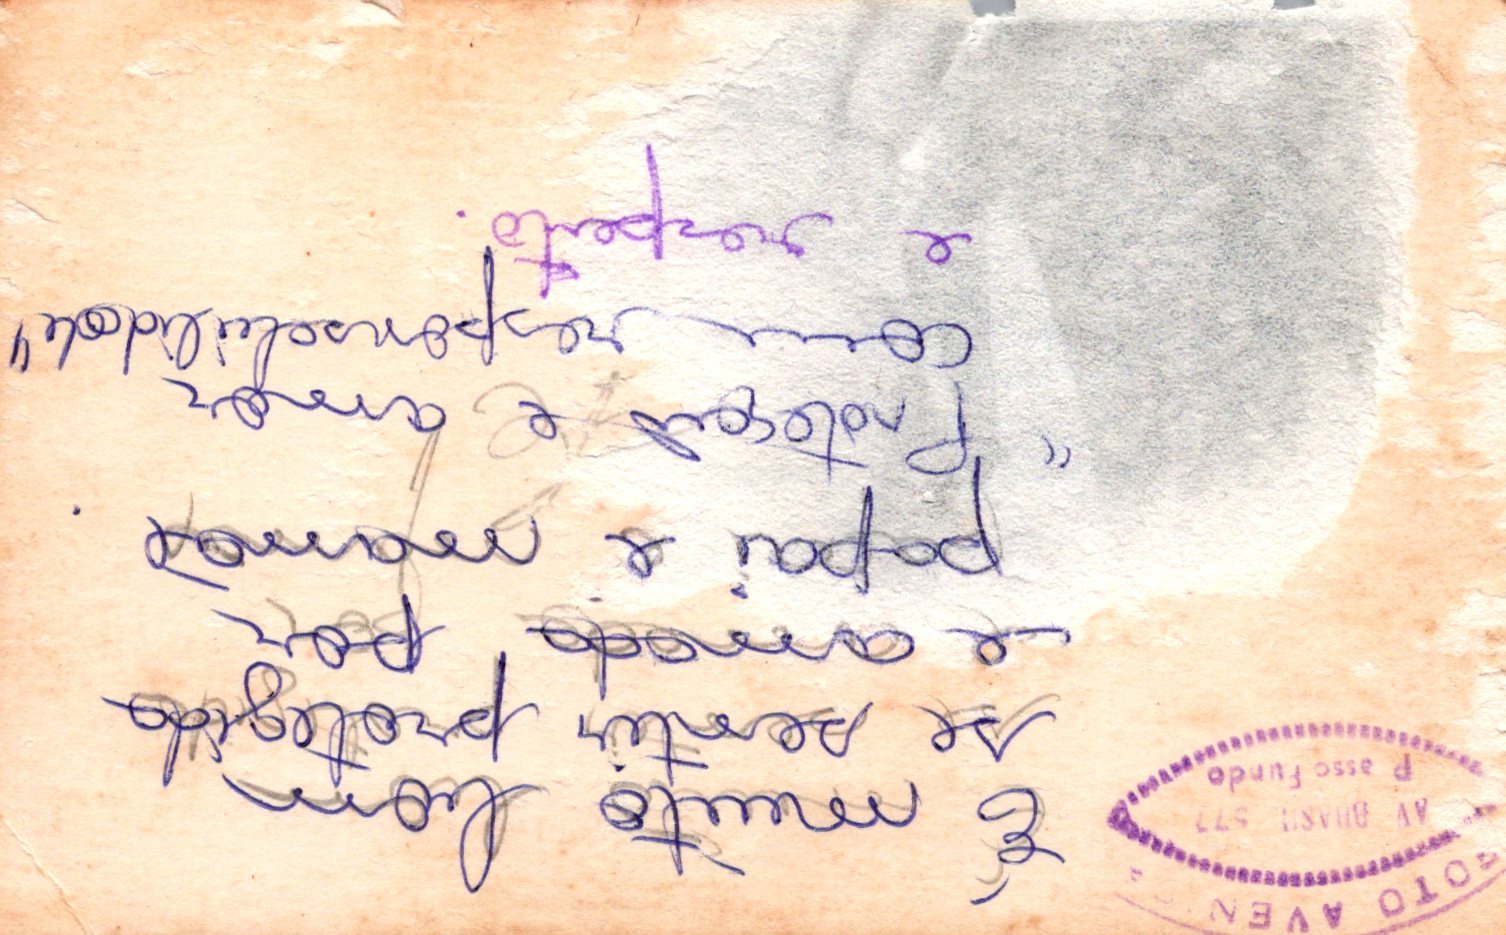 É muito bom
se sentir protegido
e amado por
papai e mamãe.
"Proteção é amor
com responsabilidade"
e respeito.
FOTO AVEN
AV BRASIL 577
Passo Fundo